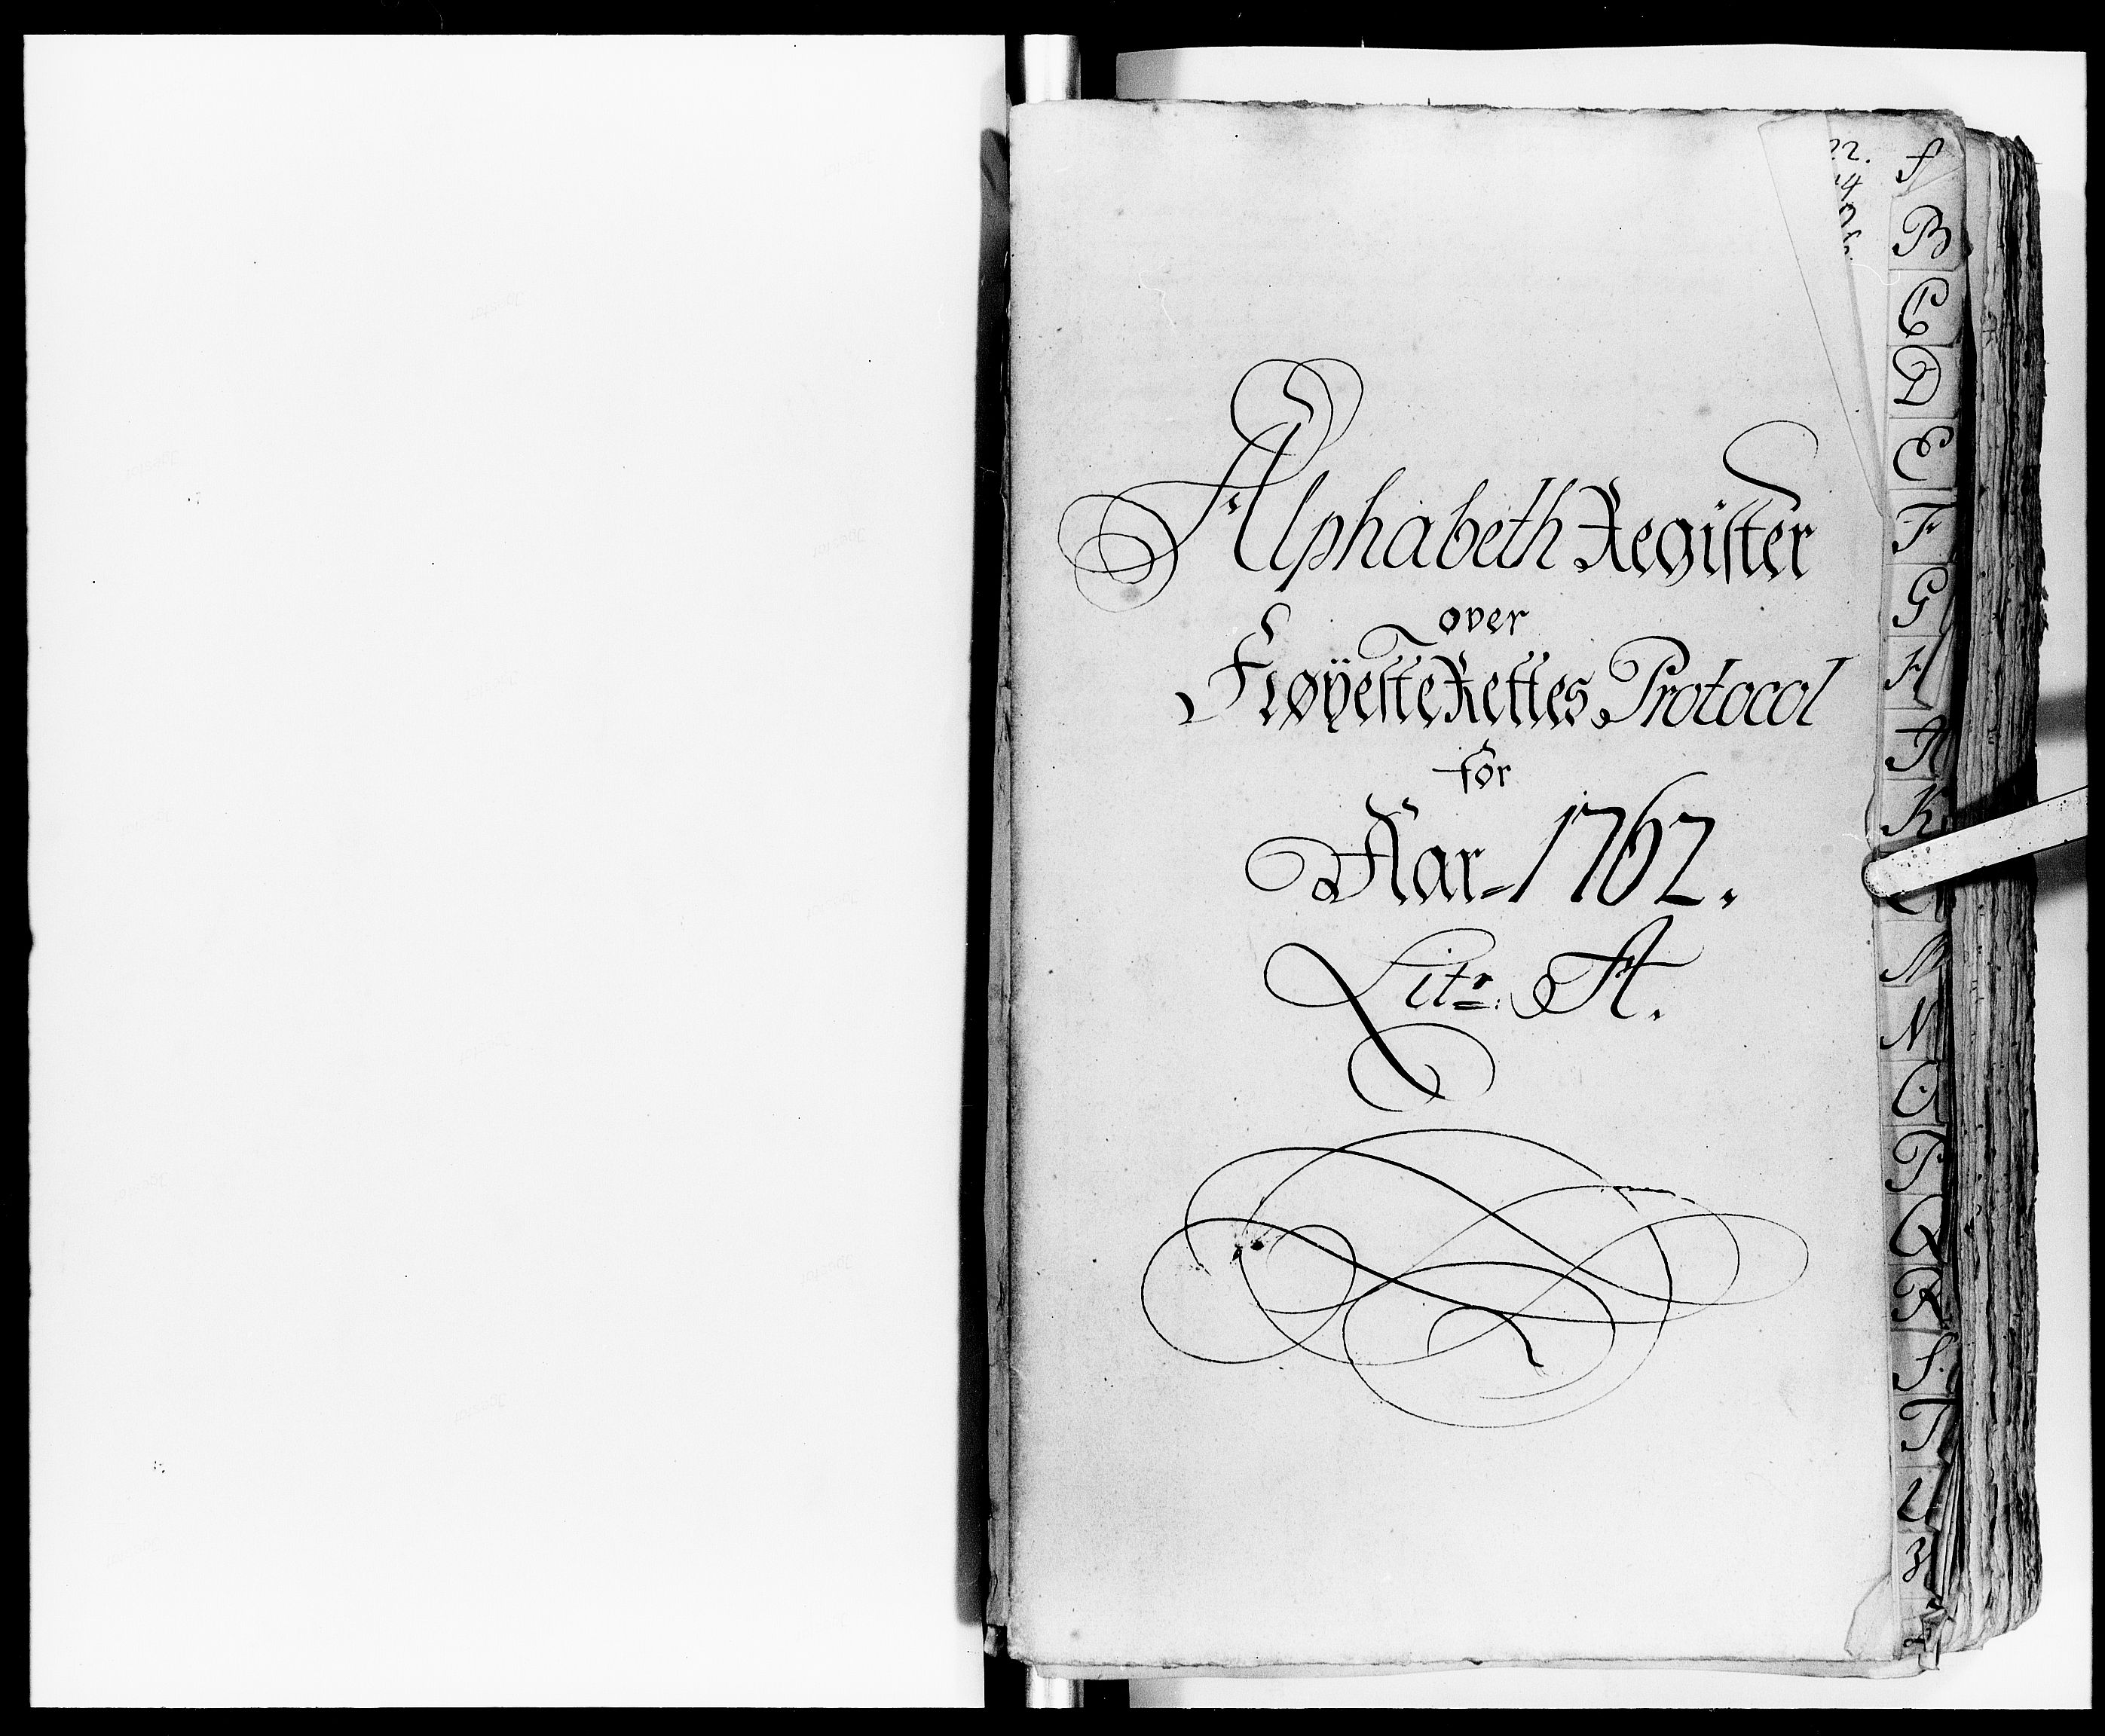 Alphabeth Register
over
HøyesteRettes Protocol
for
Aar-1762.
Litr: A.
22.
A
B
C
D
E
F
G
H
I
K
M
N
O
P
Q
R
S
T